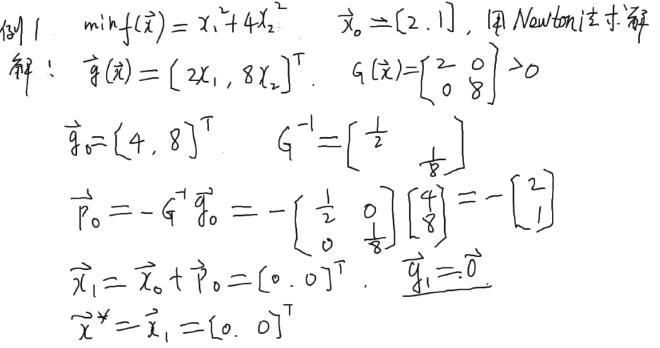 例1 min f(x⃗) = x₁² + 4x₂² x⃗₀ = [2, 1], 用Newton法求解
解: g⃗(x⃗) = [2x₁, 8x₂]ᵀ. G(x⃗) = [2 0; 0 8] > 0
g⃗₀ = [4, 8]ᵀ G⁻¹ = [1/2 ; 1/8]
p⃗₀ = -G⁻¹g⃗₀ = -[1/2 0; 0 1/8][4; 8] = -[2; 1]
x⃗₁ = x⃗₀ + p⃗₀ = [0. 0]ᵀ. g⃗₁ = 0⃗
x⃗* = x⃗₁ = [0. 0]ᵀ